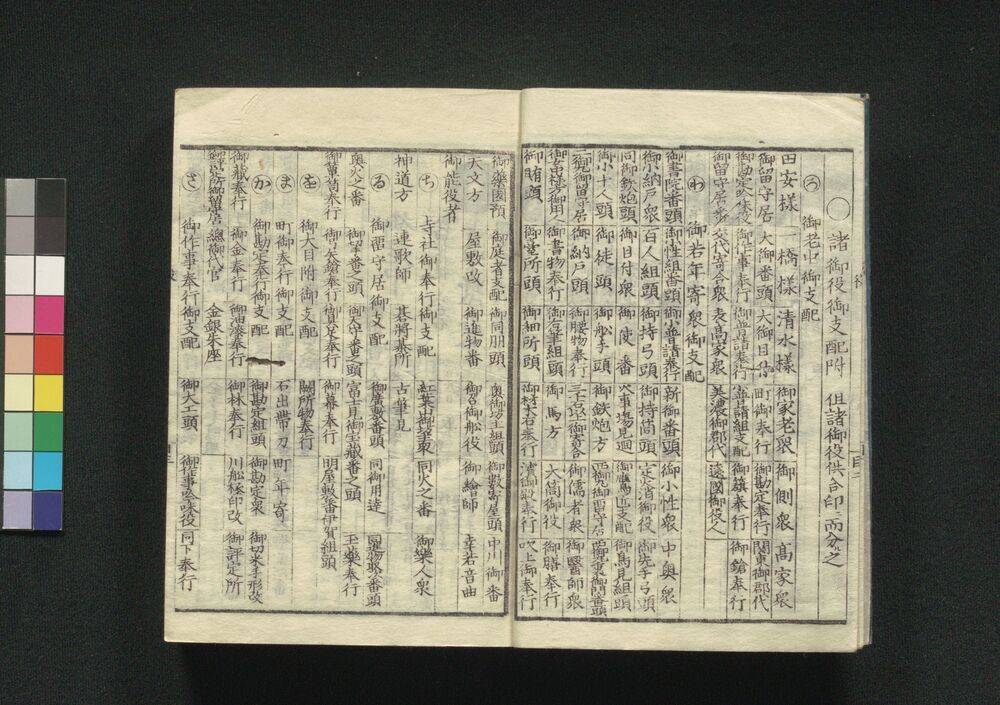 ○諸御役御支配附 但諸御役供合印ニ而分之
ろ 御老中御支配
田安様 一橋様 清水様 御家老衆 御側衆 高家衆
御留守居 大御番頭 大御目付 町御奉行 御勘定奉行 関東御郡代
御勘定吟味役 御作事奉行 御普請奉行 小普請組支配 御鎗奉行
御留守居番 交代寄合衆 表高家衆 美濃御郡代 遠国御役人
わ 御若年寄衆御支配
御書院番頭 御性組番頭 小普請奉行 新御番頭 御小性衆 中奥衆
御納戸衆 百人組頭 御持弓頭 御持筒頭 定火消御役 御先手弓頭
同御鉄炮頭 御目付衆 御使番 火事場見廻 御鷹匠支配 御馬見組頭
小十人頭 御徒頭 御船手頭 御鉄炮方 西御留守居 西御裏御門番頭
二丸御留守居 御納戸頭 御腰物奉行 御儒者衆 御医師衆
御書物奉行 御右筆組頭 御馬方 大筒御役 御膳奉行
御賄頭 御台所頭 御細所頭 御材木石奉行 濱御殿奉行 吹上御奉行
御薬園預 御庭者支配 御同朋頭 奥御坊主組頭 御数寄屋頭 中川御番
天文方 屋敷改 御進物番 御召御船役 御絵師 幸若音曲
御能役者
ち 寺社御奉行御支配 紅葉山御坊主衆 同火之番 御楽人衆
神道方 連歌師 碁将棊所 古筆見
る 御留守居御支配 御広敷番頭 同御用達 同進物取次番頭
奥火之番 御切手番之頭 御天守番之頭 富士見御宝蔵番之頭 玉薬奉行
御箪笥奉行 御矢鎗奉行 御具足奉行 御幕奉行 明屋敷番伊賀組頭
を 御大目附御支配 闕所物奉行
ま 町御奉行御支配 石出帯刀 町年寄
か 御勘定奉行御支配 御勘定組頭 御勘定衆 御切米手形改
御蔵奉行 御金奉行 御油漆奉行 御林奉行 川船極印改 御評定所
御評定所御留守居 總御代官 金銀朱座
さ 御作事奉行御支配 御大工頭 御作事吟味役 同下奉行